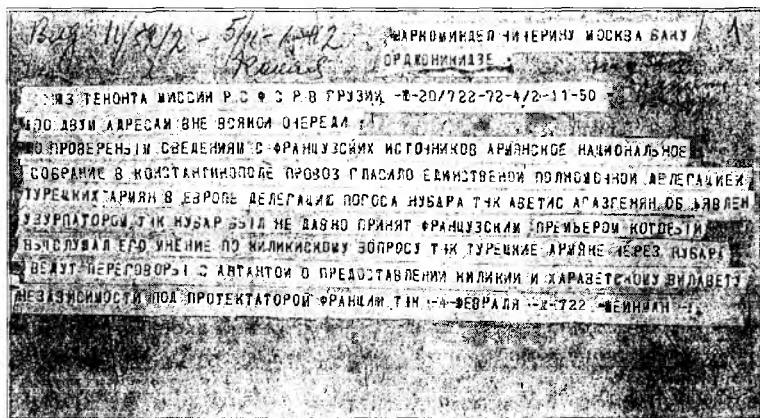 НАРКОМИНДЕЛ ЧИЧЕРИНУ МОСКВА БАКУ 1
ОРДЖОНИКИДЗЕ
ТЕНОНТА МИССИИ Р С Ф С Р В ГРУЗИИ -20/722-72-4/2-11-50 -
ПО ДВУМ АДРЕСАМ ВНЕ ВСЯКОЙ ОЧЕРЕДИ
ПО ПРОВЕРЕНЫМ СВЕДЕНИЯМ С ФРАНЦУЗСКИХ ИСТОЧНИКОВ АРМЯНСКОЕ НАЦИОНАЛЬНОЕ
СОБРАНИЕ В КОНСТАНТИНОПОЛЕ ПРОВОЗ ГЛАСИЛО ЕДИНСТВЕНОЙ ПОЛНОМОЧНОЙ ДЕЛЕГАЦИЕЙ
ТУРЕЦКИХ АРМЯН В ЕВРОПЕ ДЕЛЕГАЦИЮ ПОГОСА НУБАРА ТЧК АВЕТИС АГАЗГЕНЯН ОБ ЯВЛЕН
УЗУРПАТОРОМ ТЧК НУБАР БЫЛ НЕ ДАВНО ПРИНЯТ ФРАНЦУЗСКИМ ПРЕМЬЕРОМ
ВЫСЛУШАЛ ЕГО МНЕНИЕ ПО КИЛИКИСКОМУ ВОПРОСУ ТЧК ТУРЕЦКИЕ АРМЯНЕ ЧЕРЕЗ НУБАРА
ВЕДУТ ПЕРЕГОВОРЫ С АНТАНТОЙ О ПРЕДОСТАВЛЕНИИ КИЛИКИИ И ХАРАВЕТСКОМУ ВИЛАЕТУ
НЕЗАВИСИМОСТИ ПОД ПРОТЕКТАТОРОЙ ФРАНЦИИ ТЧК -4 ФЕВРАЛЯ 722 ШЕЙНМАН